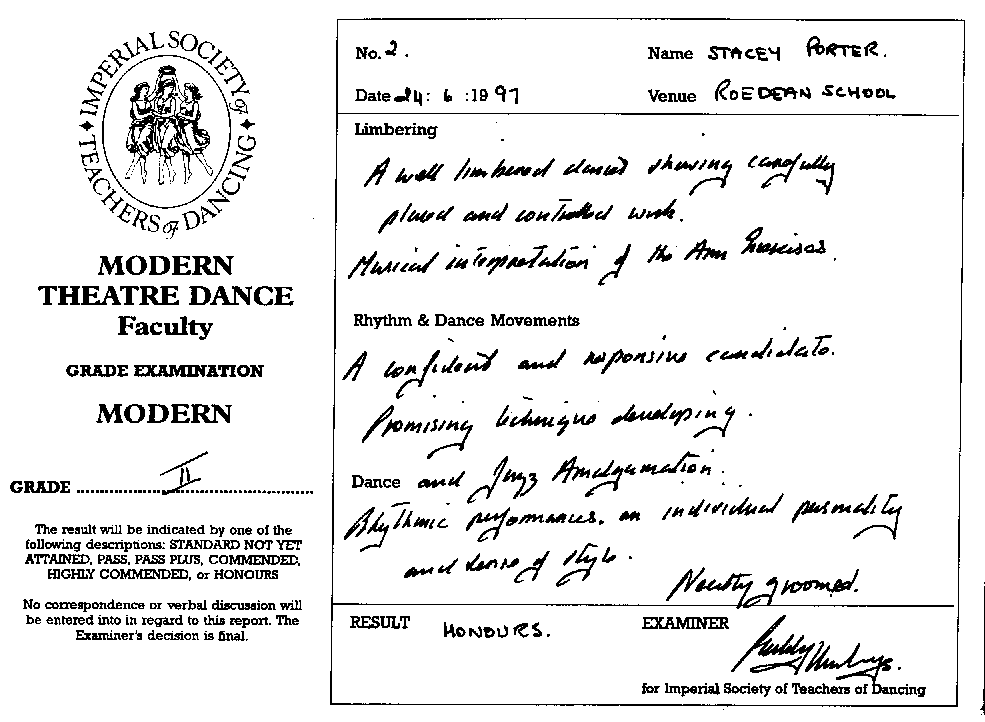 IMPERIAL SOCIETY of TEACHERS of DANCING
MODERN
THEATRE DANCE
Faculty
GRADE EXAMINATION
MODERN
GRADE II
The result will be indicated by one of the
following descriptions: STANDARD NOT YET
ATTAINED, PASS, PASS PLUS, COMMENDED,
HIGHLY COMMENDED, or HONOURS
No correspondence or verbal discussion will
be entered into in regard to this report. The
Examiner's decision is final.
No. 2.
Name STACEY PORTER.
Date 24: 6 :1997
Venue ROEDEAN SCHOOL
Limbering
A well limbered dancer showing carefully
placed and controlled work.
Musical interpretation of the Arm Exercises.
Rhythm & Dance Movements
A confident and responsive candidate.
Promising technique developing.
Dance and Jazz Amalgamation.
Rhythmic performances, an individual personality
and sense of style.
Neatly groomed.
RESULT HONOURS.
EXAMINER
for Imperial Society of Teachers of Dancing